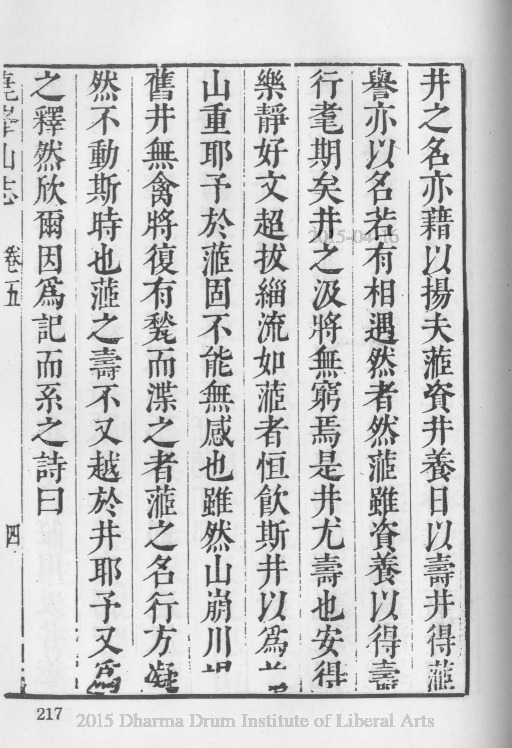 井之名亦藉以揚夫蓙資井養日以壽井得蓙
譽亦以名若有相遇然者然蓙雖資養以得壽
行耄期矣井之汲將無窮焉是井尤壽也安得
樂靜好文超拔緇流如蓙者恒飲斯井以為
山重耶予於蓙固不能無感也雖然山崩川
舊井無禽將復有甃而渫之者蓙之名行方凝
然不動斯時也蓙之壽不又越於井耶予又為
之釋然欣爾因為記而系之詩曰
堯峯山志 卷五 四
217
2015 Dharma Drum Institute of Liberal Arts